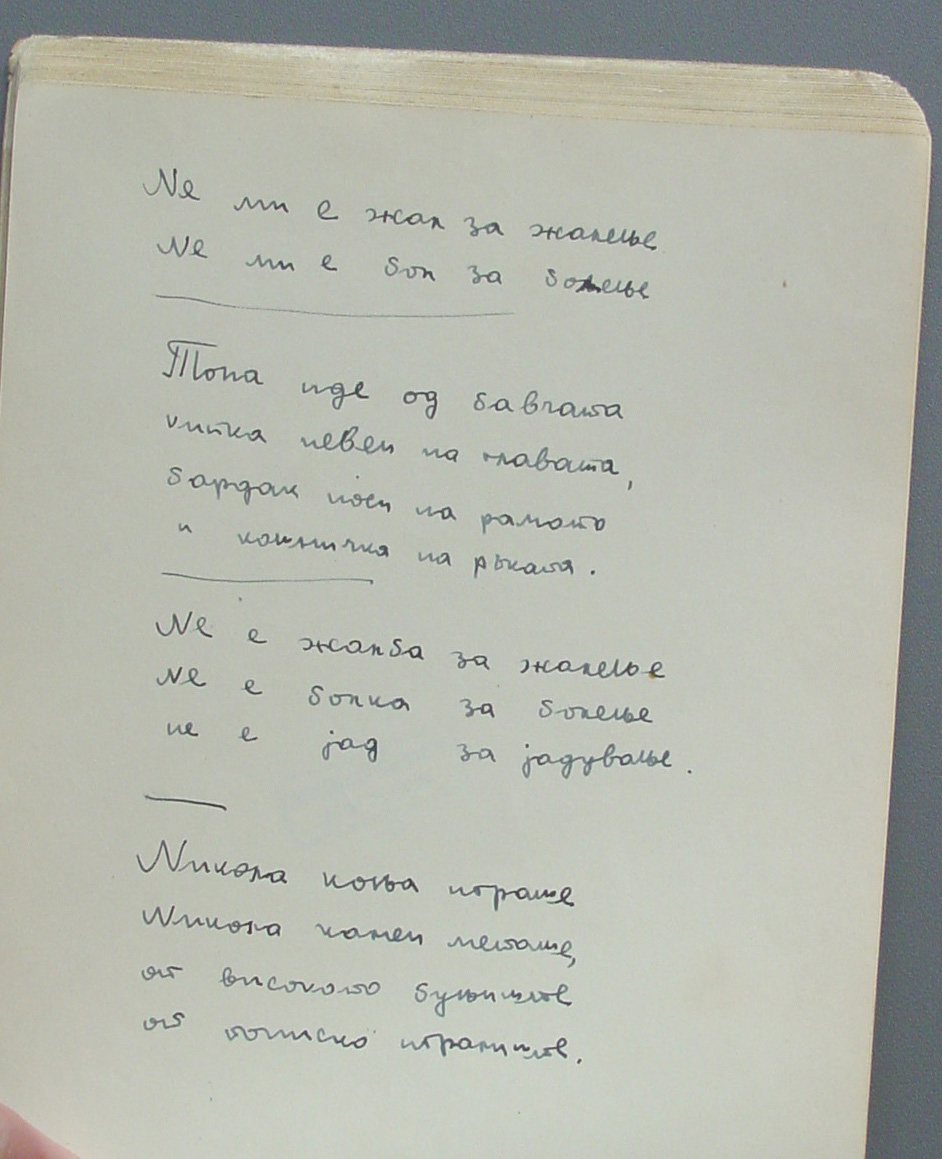 Не ми е жал за жалење
Не ми е бол за болење
Топа иде од бавчата
китка невен на главата,
бардак носи на рамото
и кошничка на рьката.
Не е жалба за жалење
Не е болка за болење
не е јад за јадување.
Никола коња играше
Никола камен меташе,
от високото буњиште
от игралиште.